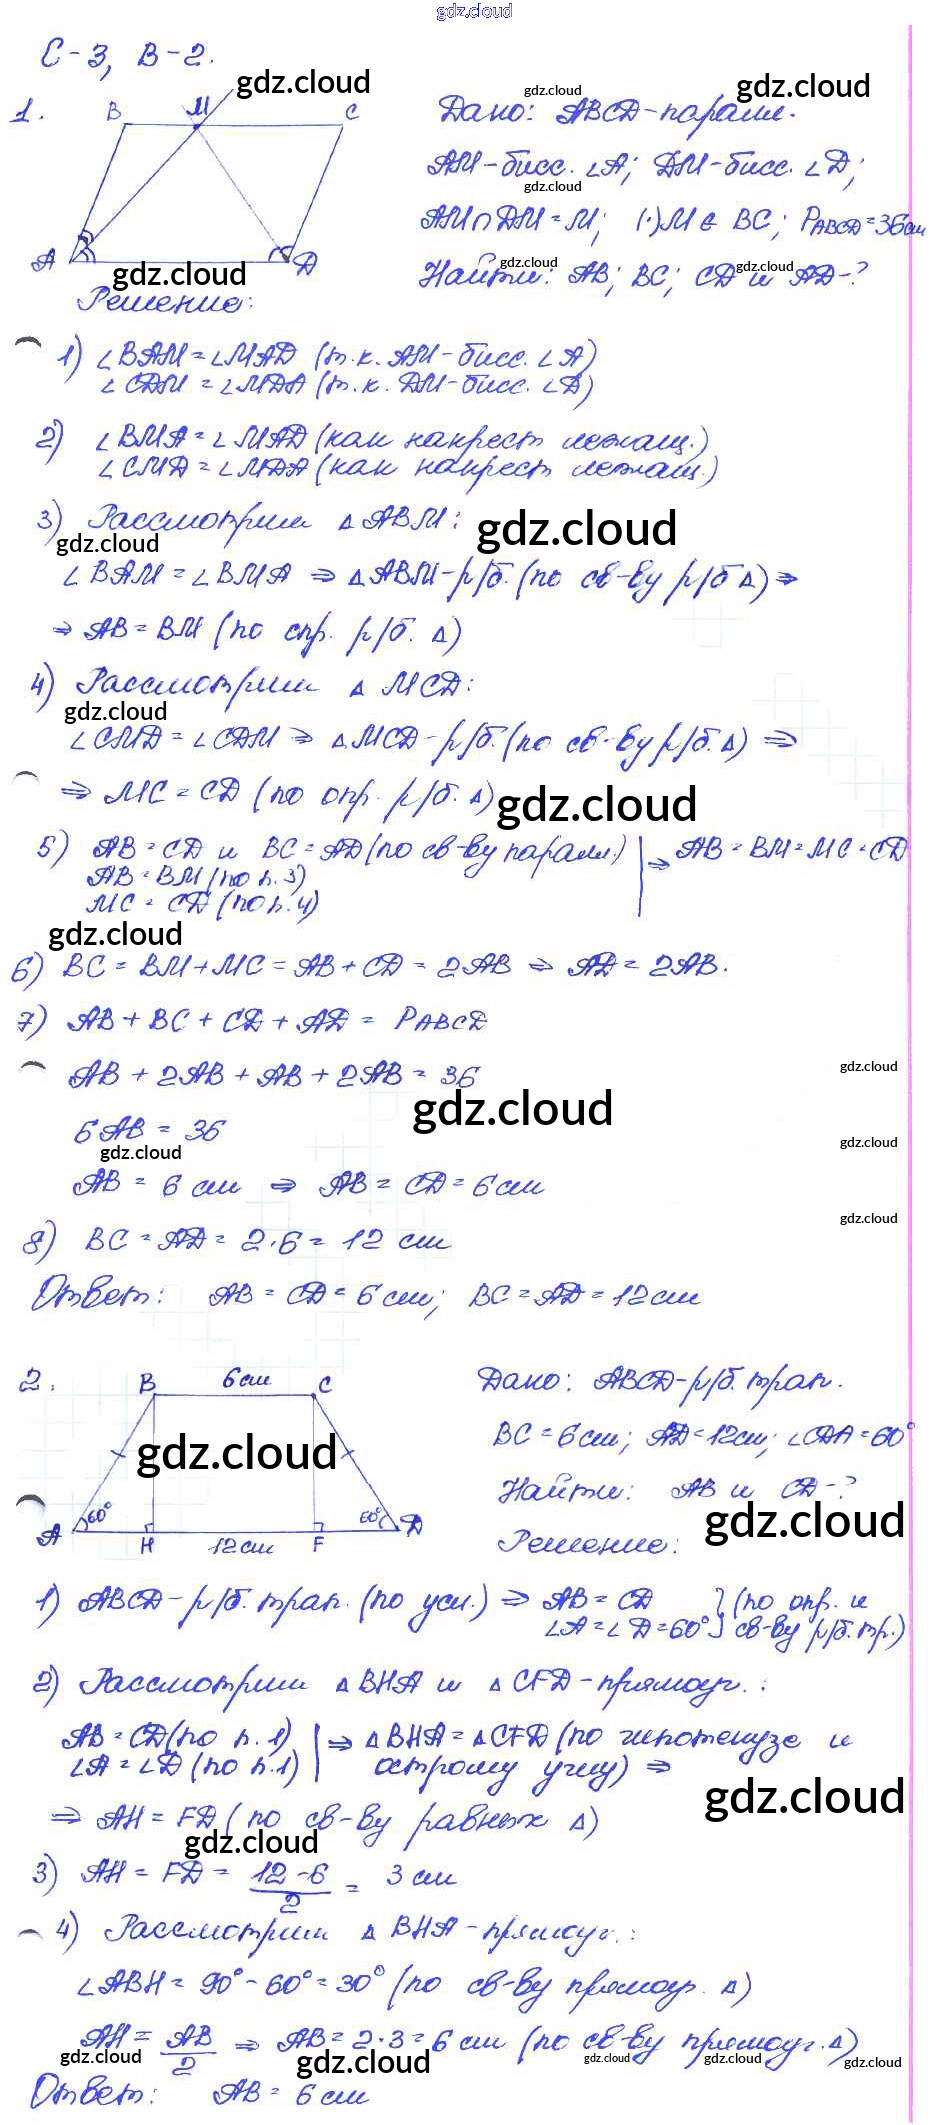 gdz.cloud
С-3, В-2.
gdz.cloud
gdz.cloud
gdz.cloud
1.
B M C
A D
Дано: ABCD-паралл.
AM-бисс. ∠A; DM-бисс. ∠D;
gdz.cloud
AM∩DM=M; (·)M∈BC; P_ABCD=36см
gdz.cloud
gdz.cloud
gdz.cloud
Найти: AB; BC; CD и AD-?
Решение:
1) ∠BAM=∠MAD (т.к. AM-бисс. ∠A)
∠CDM=∠MDA (т.к. DM-бисс. ∠D)
2) ∠BMA=∠MAD (как накрест лежащ.)
∠CMD=∠MDA (как накрест лежащ.)
3) Рассмотрим ΔABM:
gdz.cloud
gdz.cloud
∠BAM=∠BMA ⇒ ΔABM-р/б. (по св-ву р/б Δ) ⇒
⇒ AB=BM (по опр. р/б. Δ)
4) Рассмотрим Δ MCD:
gdz.cloud
∠CMD=∠CDM ⇒ ΔMCD-р/б. (по св-ву р/б. Δ) ⇒
⇒ MC=CD (по опр. р/б. Δ)
gdz.cloud
5) AB=CD и BC=AD (по св-ву паралл.) | ⇒ AB=BM=MC=CD
AB=BM (по п.3)
MC=CD (по п.4)
gdz.cloud
6) BC=BM+MC=AB+CD=2AB ⇒ AD=2AB.
7) AB+BC+CD+AD=P_ABCD
gdz.cloud
AB+2AB+AB+2AB=36
gdz.cloud
6AB=36
gdz.cloud
gdz.cloud
AB=6 см ⇒ AB=CD=6 см
gdz.cloud
8) BC=AD=2·6=12 см
Ответ: AB=CD=6 см; BC=AD=12 см
2.
B 6 см C
A 60° 60° D
H 12 см F
gdz.cloud
Дано: ABCD-р/б. трап.
BC=6 см; AD=12 см; ∠CDA=60°
Найти: AB и CD-?
gdz.cloud
Решение:
1) ABCD-р/б. трап. (по усл.) ⇒ AB=CD } (по опр. и
∠A=∠D=60° } св-ву р/б. тр.)
2) Рассмотрим ΔBHA и ΔCFD-прямоуг.:
AB=CD (по п.1) | ⇒ ΔBHA=ΔCFD (по гипотенузе и
∠A=∠D (по п.1) | острому углу) ⇒
gdz.cloud
⇒ AH=FD (по св-ву равных Δ)
gdz.cloud
3) AH=FD=(12-6)/2=3 см
4) Рассмотрим ΔBHA-прямоуг.:
∠ABH=90°-60°=30° (по св-ву прямоуг. Δ)
AH=AB/2 ⇒ AB=2·3=6 см (по св-ву прямоуг. Δ)
gdz.cloud
gdz.cloud
gdz.cloud
gdz.cloud
gdz.cloud
Ответ: AB=6 см